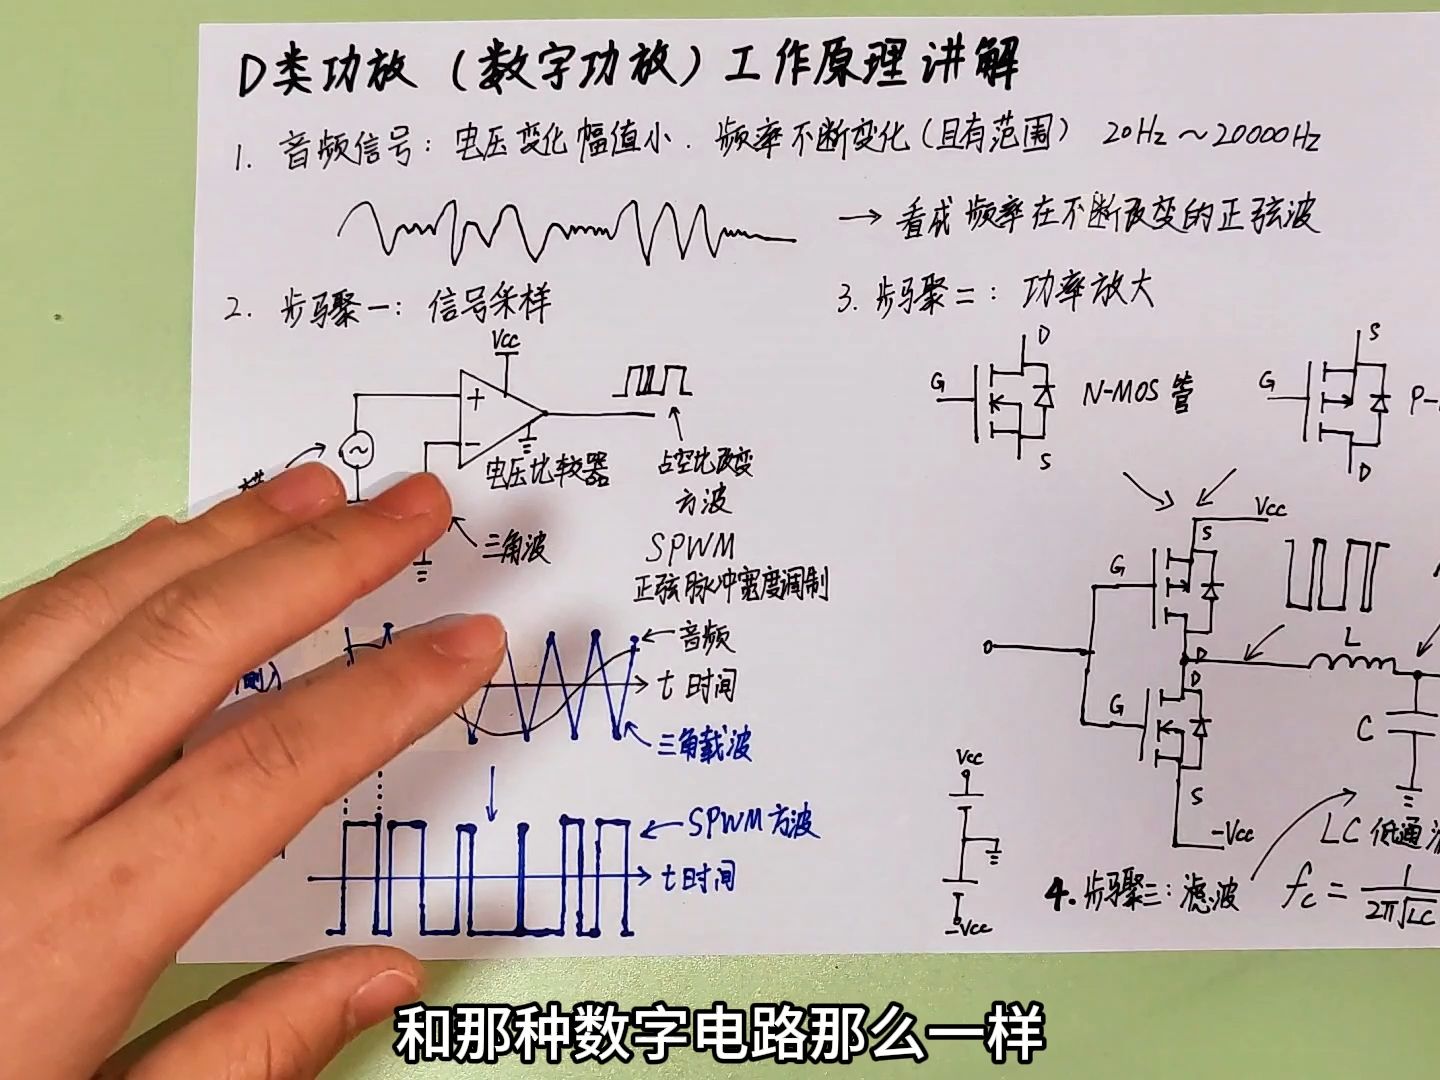 D类功放（数字功放）工作原理讲解
1. 音频信号：电压变化幅值小．频率不断变化（且有范围） 20Hz～20000Hz
→ 看成频率在不断改变的正弦波
2. 步骤一：信号采样
Vcc
+
~
-
电压比较器
三角波
占空比改变
方波
SPWM
正弦脉冲宽度调制
音频
t 时间
三角载波
SPWM方波
t时间
3. 步骤二：功率放大
D
G
N-MOS管
S
S
G
P-
D
Vcc
S
G
D
L
D
G
C
S
-Vcc
Vcc
-Vcc
LC 低通
4. 步骤三：滤波
fc = 1/2π√LC
和那种数字电路那么一样